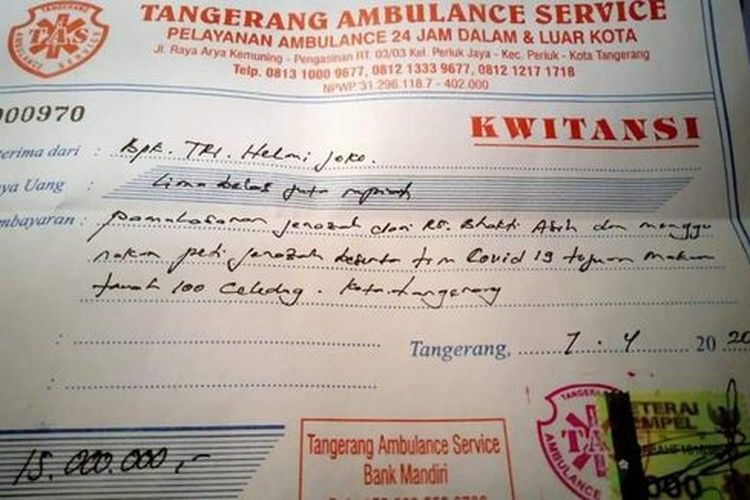 TANGERANG AMBULANCE SERVICE
PELAYANAN AMBULANCE 24 JAM DALAM & LUAR KOTA
Jl. Raya Arya Kemuning - Pengasinan RT. 03/03 Kel. Periuk Jaya - Kec. Periuk - Kota Tangerang
Telp. 0813 1000 9677, 0812 1333 9677, 0812 1217 1718
NPWP 31.296.118.7 - 402.000
TANGERANG
TAS
AMBULANCE SERVICE
000970
KWITANSI
erima dari : Bpk. TRI. Helmi Joko.
ya Uang : Lima belas juta rupiah
mbayaran : pamakasaran jenazah dari RS. Bhakti Asih dan menggu
nakan peti jenazah beserta tim Covid 19 tujuan makam
tanah 100 Celedug. Kota tangerang
Tangerang, 7 . 4 2020
15.000.000,-
Tangerang Ambulance Service
Bank Mandiri
TANGERA
TA
AMBULANC
METERAI
TEMPEL
000